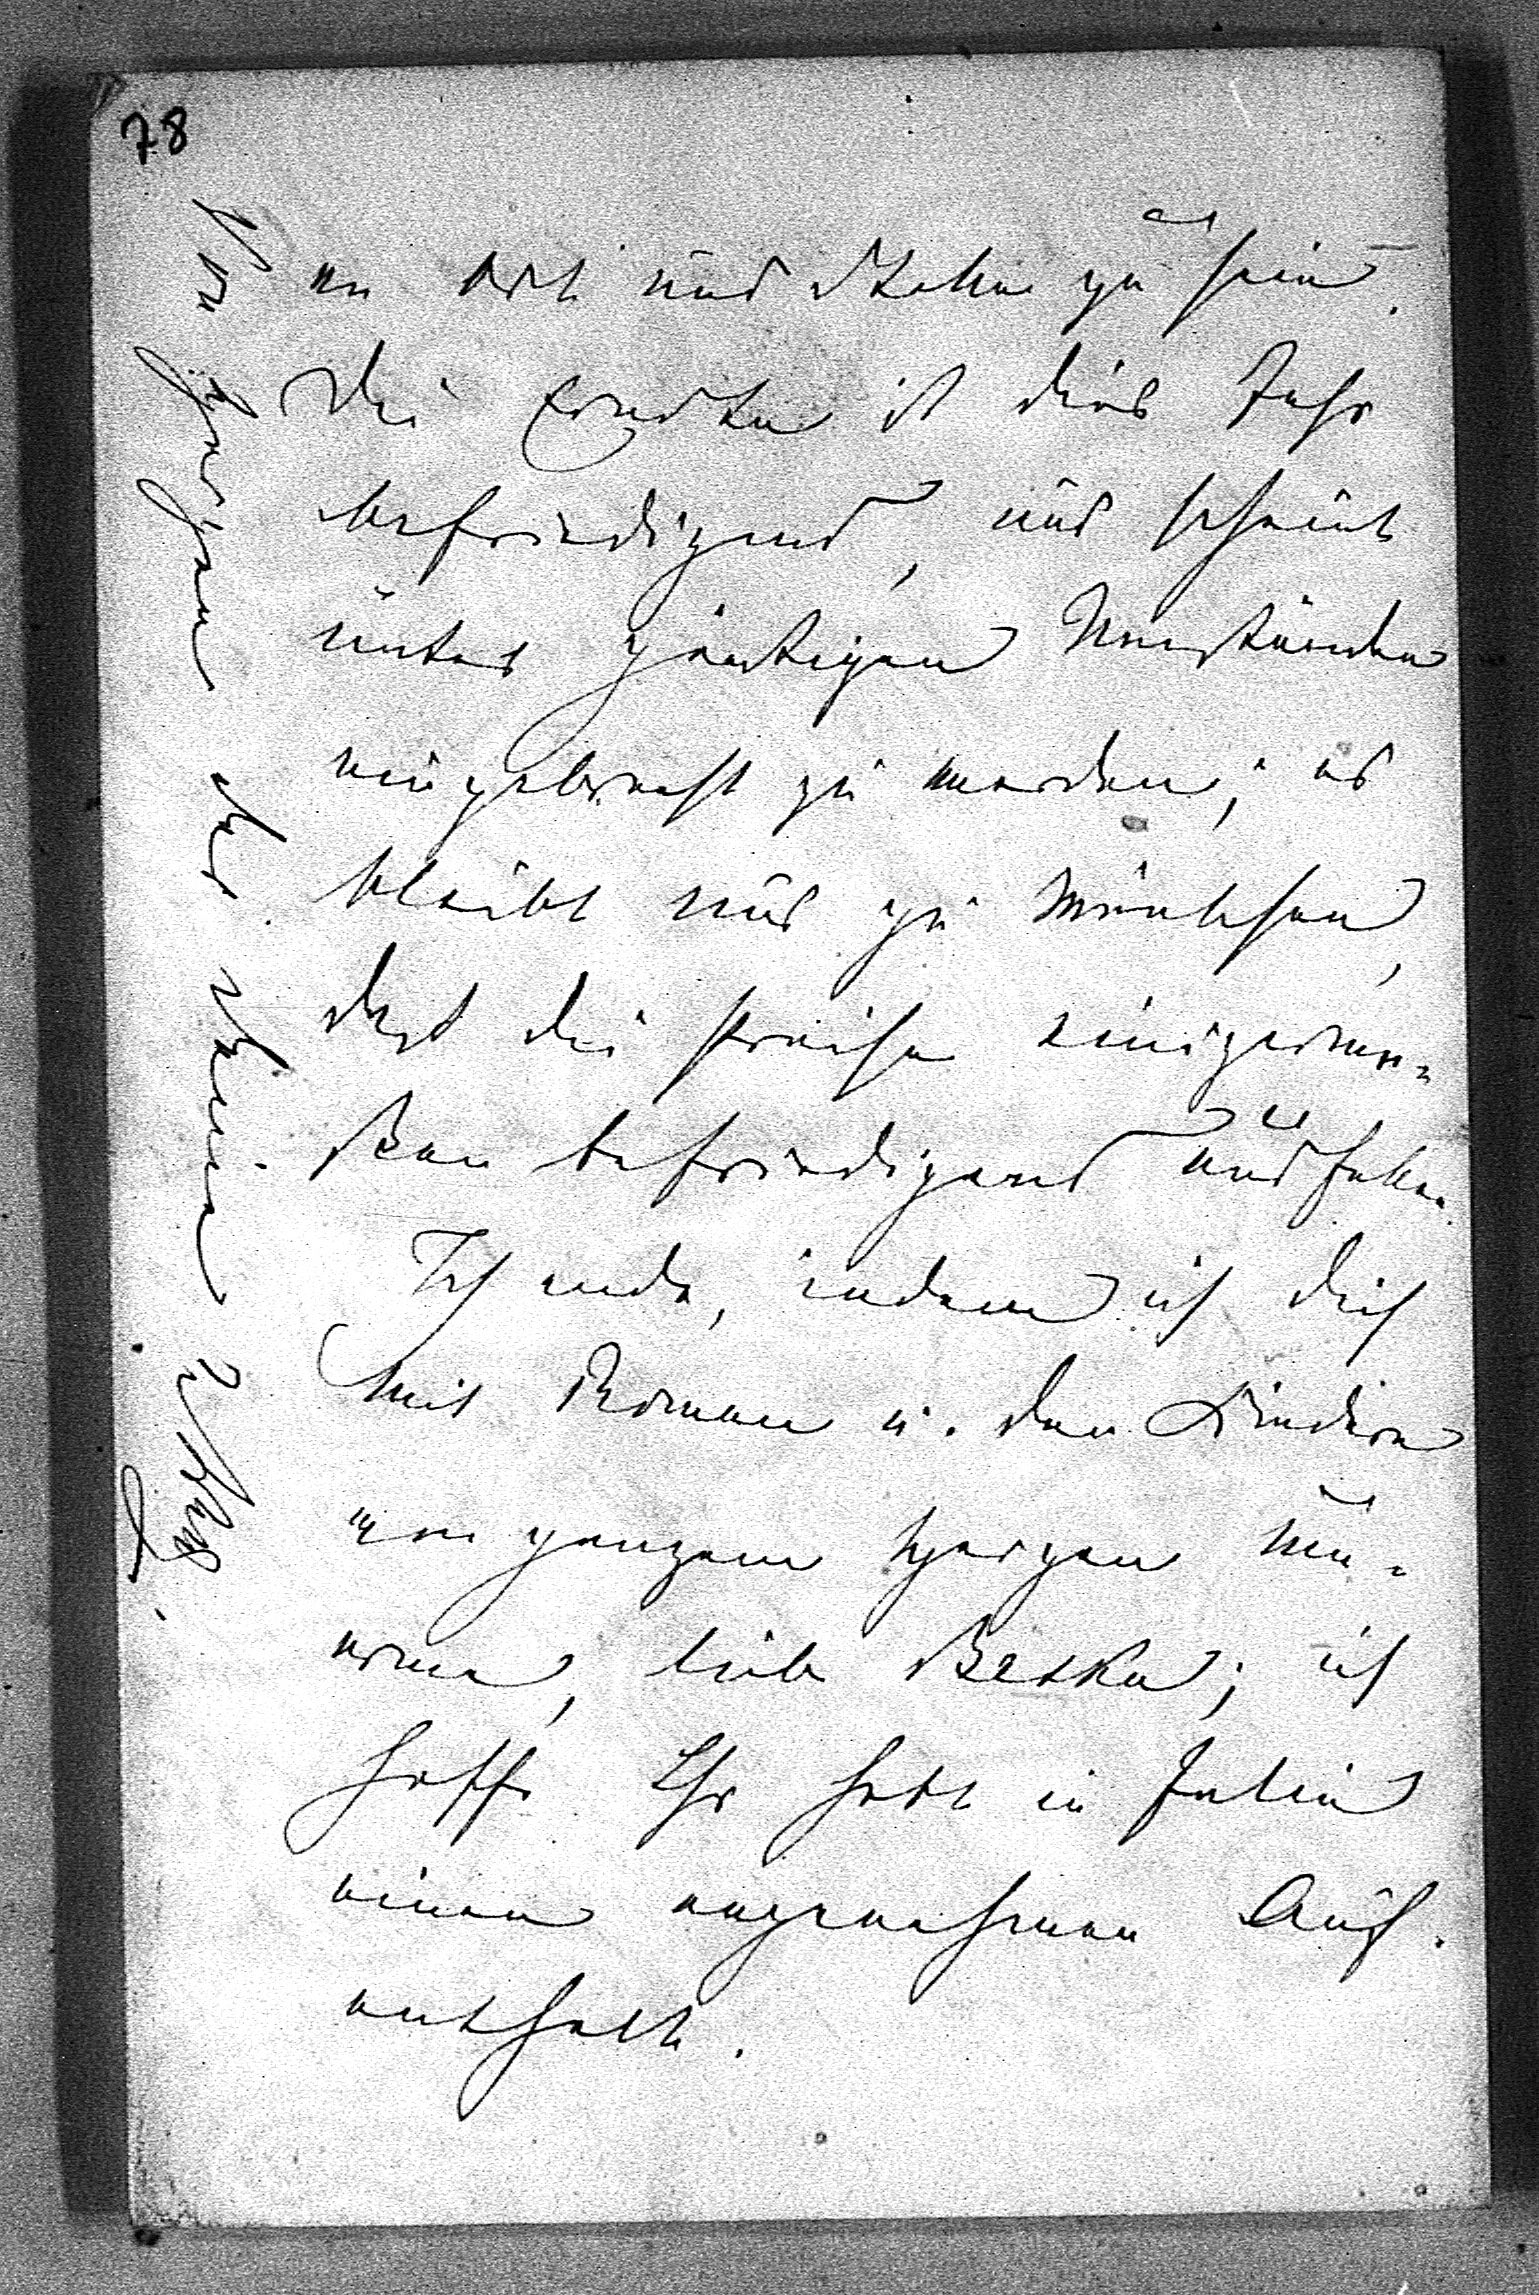 78
an Ort und Stelle zu sein.
Die Erndte ist dies Jahr
befriedigend, und scheint
unter günstigen Umständen
eingebracht zu werden; es
bleibt nur zu wünschen,
daß die Preise einigerma-
ßen befriedigend ausfallen.
Ich ende, indem ich Dich
mit Roman u. den Kindern
von ganzem Herzen um-
arme, liebe Betka; ich
hoffe Ihr habt in Julin
einen angenehmen Auf-
enthalt.
Von Herzen der Deine